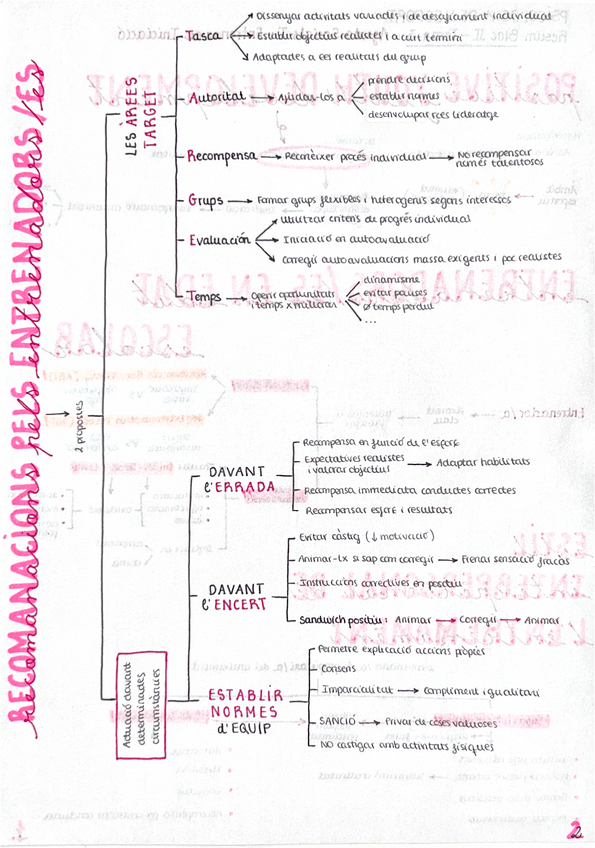 RECOMANACIONS PELS ENTRENADORS/ES
recomanacions pels entrenadors/es
2 propostes
LES ÀREES
TARGET
Tasca
Dissenyar activitats variades i de desafiament individual
Establir objectius realistes i a curt termini
Adaptades a les realitats del grup
Autoritat → Ajudar-los a
prendre decisions
establir normes
desenvolupar rols lideratge
Recompensa → Reconèixer procés individual → No recompensar
només talentosos
Grups → Formar grups flexibles i heterogenis segons interessos
Evaluación
Utilitzar criteris de progrés individual
Iniciació en autoavaluació
Corregir autoavaluacions massa exigents i poc realistes
Temps → Oferir oportunitats
i temps x millorar
dinamisme
evitar pauses
Ø temps perdut
...
Actuació davant
determinades
circumstàncies
DAVANT
l'ERRADA
Recompensa en funció de l'esforç
Expectatives realistes
i valorar objectius → Adaptar habilitats
Recompensa immediata conductes correctes
Recompensar esforç i resultats
DAVANT
l'ENCERT
Evitar càstig (↓ motivació)
Animar-lx si sap com corregir → Frenar sensació fracàs
Instruccions correctives en positiu
Sandwich positiu: Animar → Corregir → Animar
ESTABLIR
NORMES
d'EQUIP
Permetre explicació accions pròpies
Consens
Imparcialitat → compliment igualitari
SANCIÓ → Privar de coses valuoses
NO castigar amb activitats físiques
2